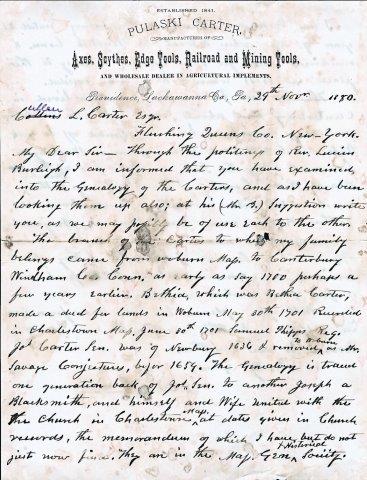 ESTABLISHED 1841.
PULASKI CARTER,
MANUFACTURER OF
Axes, Scythes, Edge Tools, Railroad and Mining Tools,
AND WHOLESALE DEALER IN AGRICULTURAL IMPLEMENTS.
Providence, Lackawanna Co., Pa., 29th Novr 1880.
Cullen
Collens L. Carter Esqr.
Flushing Queens Co. New-York.
My Dear Sir – Through the politeness of Rev. Lucius
Burleigh, I am informed that you have examined
into the Genealogy of the Carters, and as I have been
looking them up also, at his (Mr B.) Suggestion write
you, as we may possibly be of use each to the other.
The branch of the Carters to which my family
belongs came from Woburn Mass, to Canterbury
Windham Co. Conn, as early as say 1700 perhaps a
few years earlier. Bethia, which was Bethia Carter,
made a deed for lands in Woburn May 30th 1701 Recorded
in Charlestown Mass, June 30th 1701 Samuel Phipps Reg.
Jos Carter Sen. was of Newbury 1636 & removed to Woburn as Mr.
Savage Conjectures, before 1659. The Genealogy is traced
one generation back of Jos, Sen. to another Joseph a
Blacksmith, and himself and Wife united with the
the Church in Charlestown Mass, at dates given in Church
records, the memorandum of which I have, but do not
just now find. They are in the Mass, Gen & Historical Society.